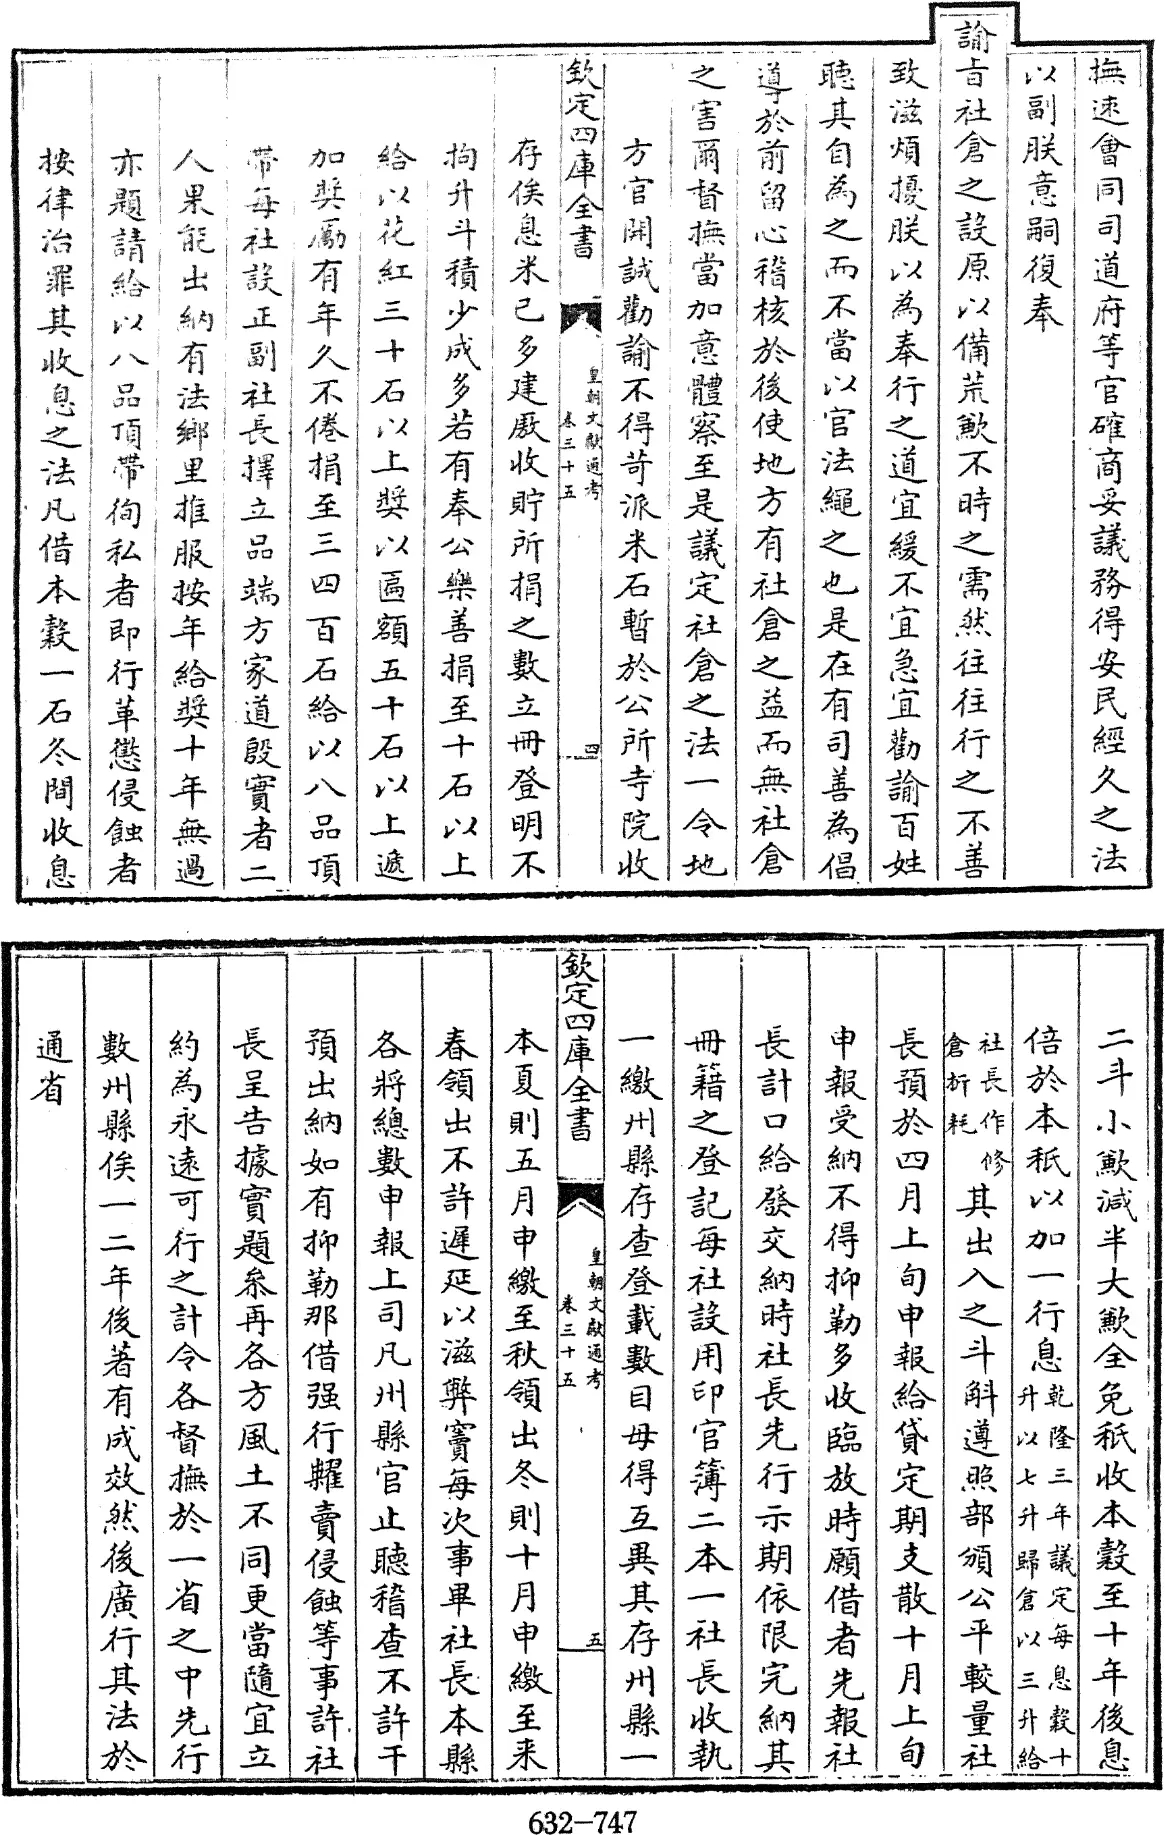 撫速會同司道府等官確商妥議務得安民經久之法
以副朕意嗣復奉
諭旨社倉之設原以備荒歉不時之需然往往行之不善
致滋煩擾朕以為奉行之道宜緩不宜急宜勸諭百姓
聽其自為之而不當以官法繩之也是在有司善為倡
導於前留心稽核於後使地方有社倉之益而無社倉
之害爾督撫當加意體察至是議定社倉之法一令地
方官開誠勸諭不得苛派米石暫於公所寺院收
欽定四庫全書
皇朝文獻通考
卷三十五
四
存俟息米已多建厫收貯所捐之數立冊登明不
拘升斗積少成多若有奉公樂善捐至十石以上
給以花紅三十石以上奬以匾額五十石以上遞
加奬勵有年久不倦捐至三四百石給以八品頂
帶每社設正副社長擇立品端方家道殷實者二
人果能出納有法鄉里推服按年給奬十年無過
亦題請給以八品頂帶徇私者即行革懲侵蝕者
按律治罪其收息之法凡借本穀一石冬間收息
二斗小歉減半大歉全免秖收本穀至十年後息
倍於本秖以加一行息乾隆三年議定每息穀十
升以七升歸倉以三升給
社長作修
倉折耗其出入之斗斛遵照部頒公平較量社
長預於四月上旬申報給貸定期支散十月上旬
申報受納不得抑勒多收臨放時願借者先報社
長計口給發交納時社長先行示期依限完納其
冊籍之登記每社設用印官簿二本一社長收執
一繳州縣存查登載數目毋得互異其存州縣一
欽定四庫全書
皇朝文獻通考
卷三十五
五
本夏則五月申繳至秋領出冬則十月申繳至来
春領出不許遲延以滋弊竇每次事畢社長本縣
各將總數申報上司凡州縣官止聽稽查不許干
預出納如有抑勒那借强行糶賣侵蝕等事許社
長呈告據實題叅再各方風土不同更當隨宜立
約為永遠可行之計令各督撫於一省之中先行
數州縣俟一二年後著有成效然後廣行其法於
通省
632-747